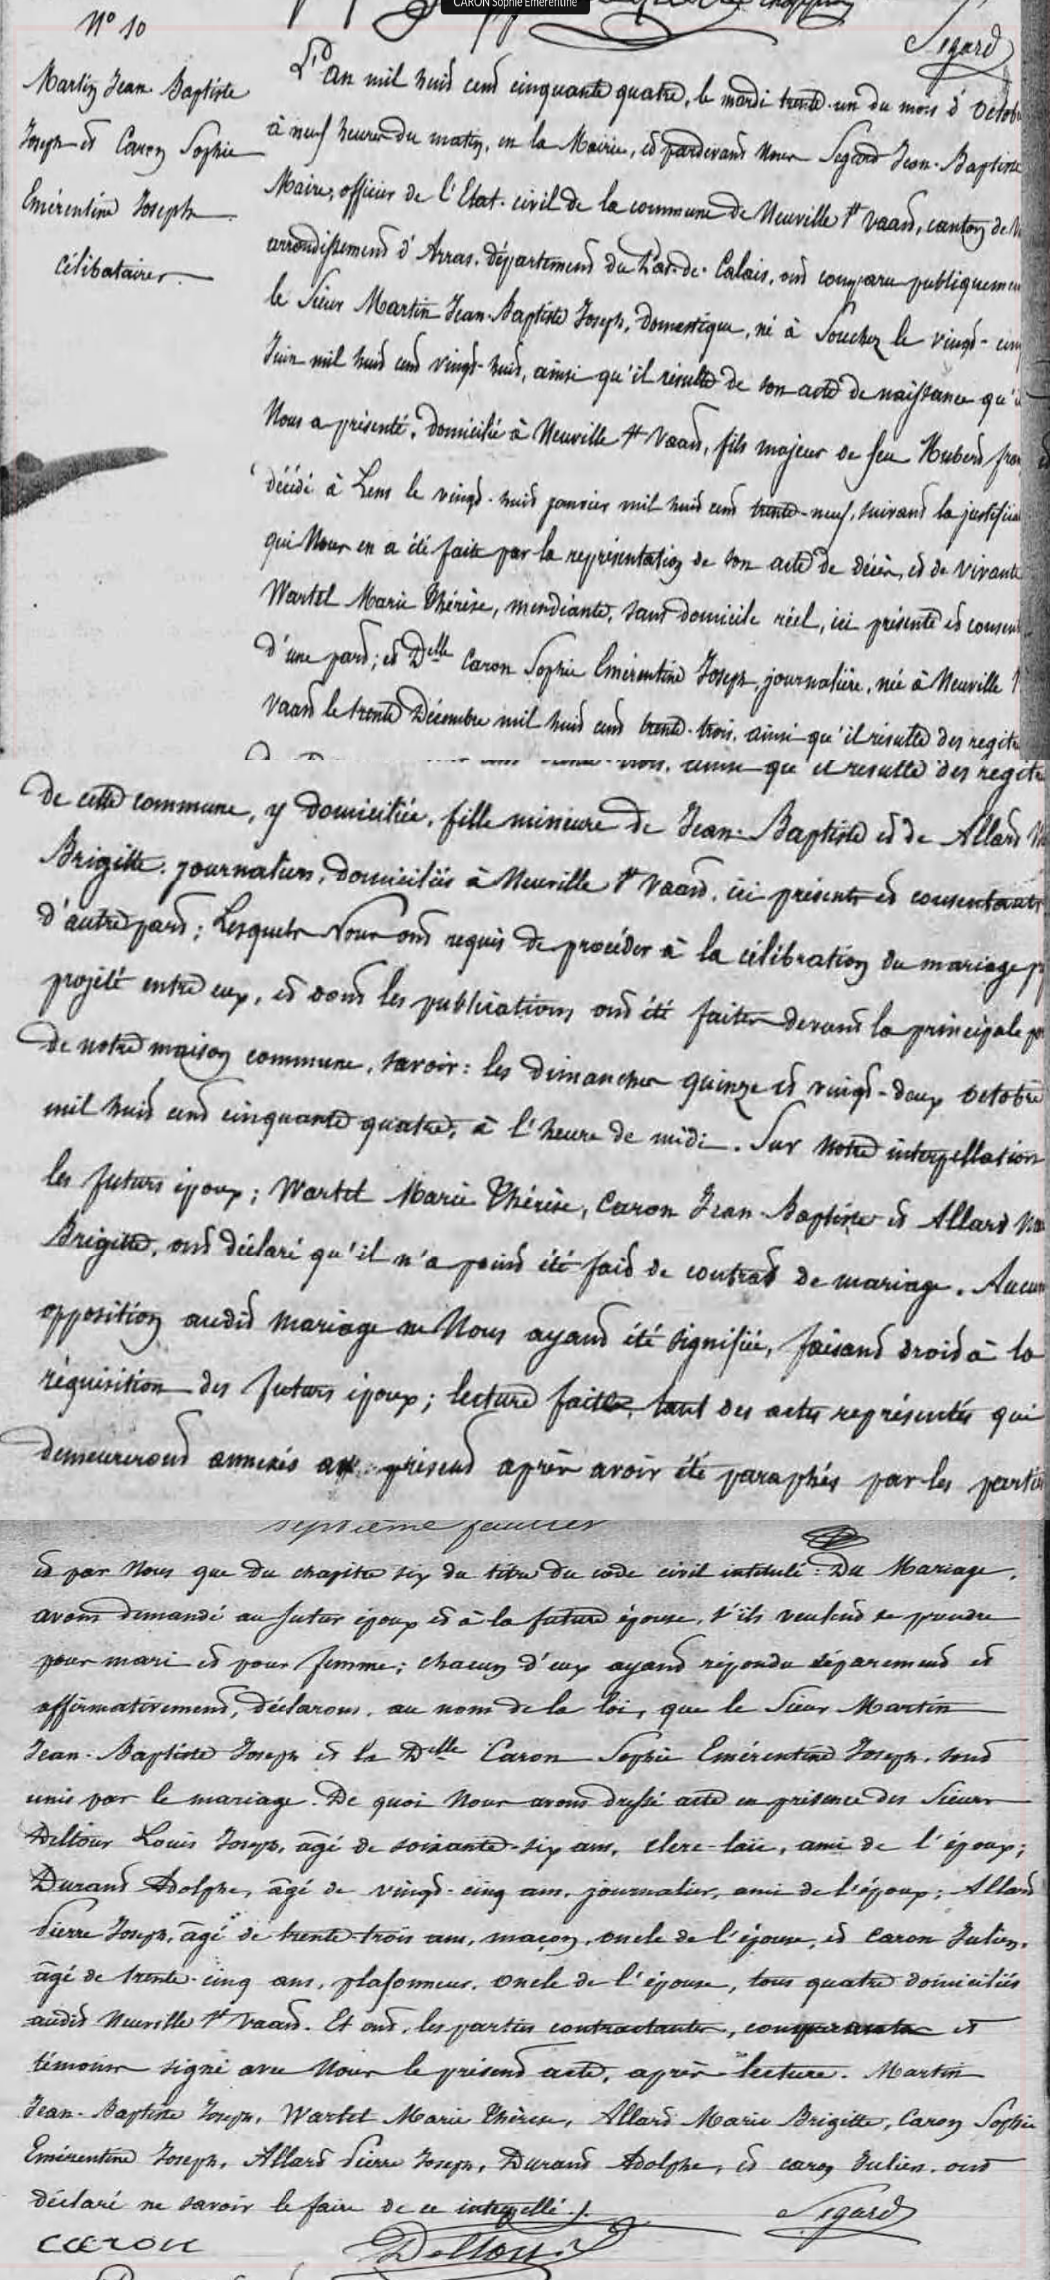 CARON Sophie Emerentine
N° 10
Segard
Martin Jean-Baptiste
Joseph et Caron Sophie
Emérentine Joseph
célibataires
L'An mil huit cent cinquante quatre, le mardi trente-un du mois d'Octob
à neuf heures du matin, en la Mairie, et pardevant Nous Segard Jean-Baptiste
Maire, officier de l'Etat-civil de la commune de Neuville St Vaast, canton de
arrondissement d'Arras, département du Pas-de-Calais, ont comparu publiquemen
le Sieur Martin Jean-Baptiste Joseph, domestique, né à Souchez le vingt-cin
Juin mil huit cent vingt-huit, ainsi qu'il résulte de son acte de naissance qu'
Nous a présenté, domicilié à Neuville St Vaast, fils majeur de feu Hubert fran
décédé à Lens le vingt-huit janvier mil huit cent trente-neuf, suivant la justific
qui Nous en a été faite par la représentation de son acte de décès, et de vivante
Wartel Marie Thérèse, mendiante, sans domicile réel, ici présente et consen
d'une part; et Delle Caron Sophie Emérentine Joseph, journalière, née à Neuville
Vaast le trente Décembre mil huit cent trente-trois, ainsi qu'il résulte des regit
de cette commune, y domiciliée, fille mineure de Jean-Baptiste et de Allard
Brigitte, journaliers, domiciliés à Neuville St Vaast, ici présents et consentants
d'autre part; Lesquels Nous ont requis de procéder à la célébration du mariage
projeté entre eux, et dont les publications ont été faites devant la principale
de notre maison commune, savoir: les dimanches quinze et vingt-deux octobre
mil huit cent cinquante quatre, à l'heure de midi. Sur notre interpellation
les futurs époux; Wartel Marie Thérèse, Caron Jean-Baptiste et Allard Ma
Brigitte, ont déclaré qu'il n'a point été fait de contrat de mariage. Aucun
opposition audit mariage ne Nous ayant été signifiée, faisant droit à la
réquisition des futurs époux; lecture faite, tant des actes représentés qui
demeureront annexés au présent après avoir été paraphés par les parti
septième feuillet
et par Nous que du chapitre six du titre du code civil intitulé: Du Mariage,
avons demandé au futur époux et à la future épouse, s'ils veulent se prendre
pour mari et pour femme; chacun d'eux ayant répondu séparément et
affirmativement, déclarons, au nom de la loi, que le Sieur Martin
Jean-Baptiste Joseph et la Delle Caron Sophie Emérentine Joseph, sont
unis par le mariage. De quoi Nous avons dressé acte en présence des Sieurs
Deltour Louis Joseph, âgé de soixante-six ans, clerc-laïc, ami de l'époux;
Durand Adolphe, âgé de vingt-cinq ans, journalier, ami de l'époux; Allard
Pierre Joseph, âgé de trente-trois ans, maçon, oncle de l'épouse, et Caron Julien,
âgé de trente-cinq ans, plafonneur, oncle de l'épouse, tous quatre domiciliés
audit Neuville St Vaast. Et ont, les parties contractantes, comparants et
témoins signé avec Nous le présent acte, après lecture. Martin
Jean-Baptiste Joseph, Wartel Marie Thérèse, Allard Marie Brigitte, Caron Sophie
Emérentine Joseph, Allard Pierre Joseph, Durand Adolphe, et caron Julien, ont
déclaré ne savoir le faire de ce interpellé.
caron Deltour Segard